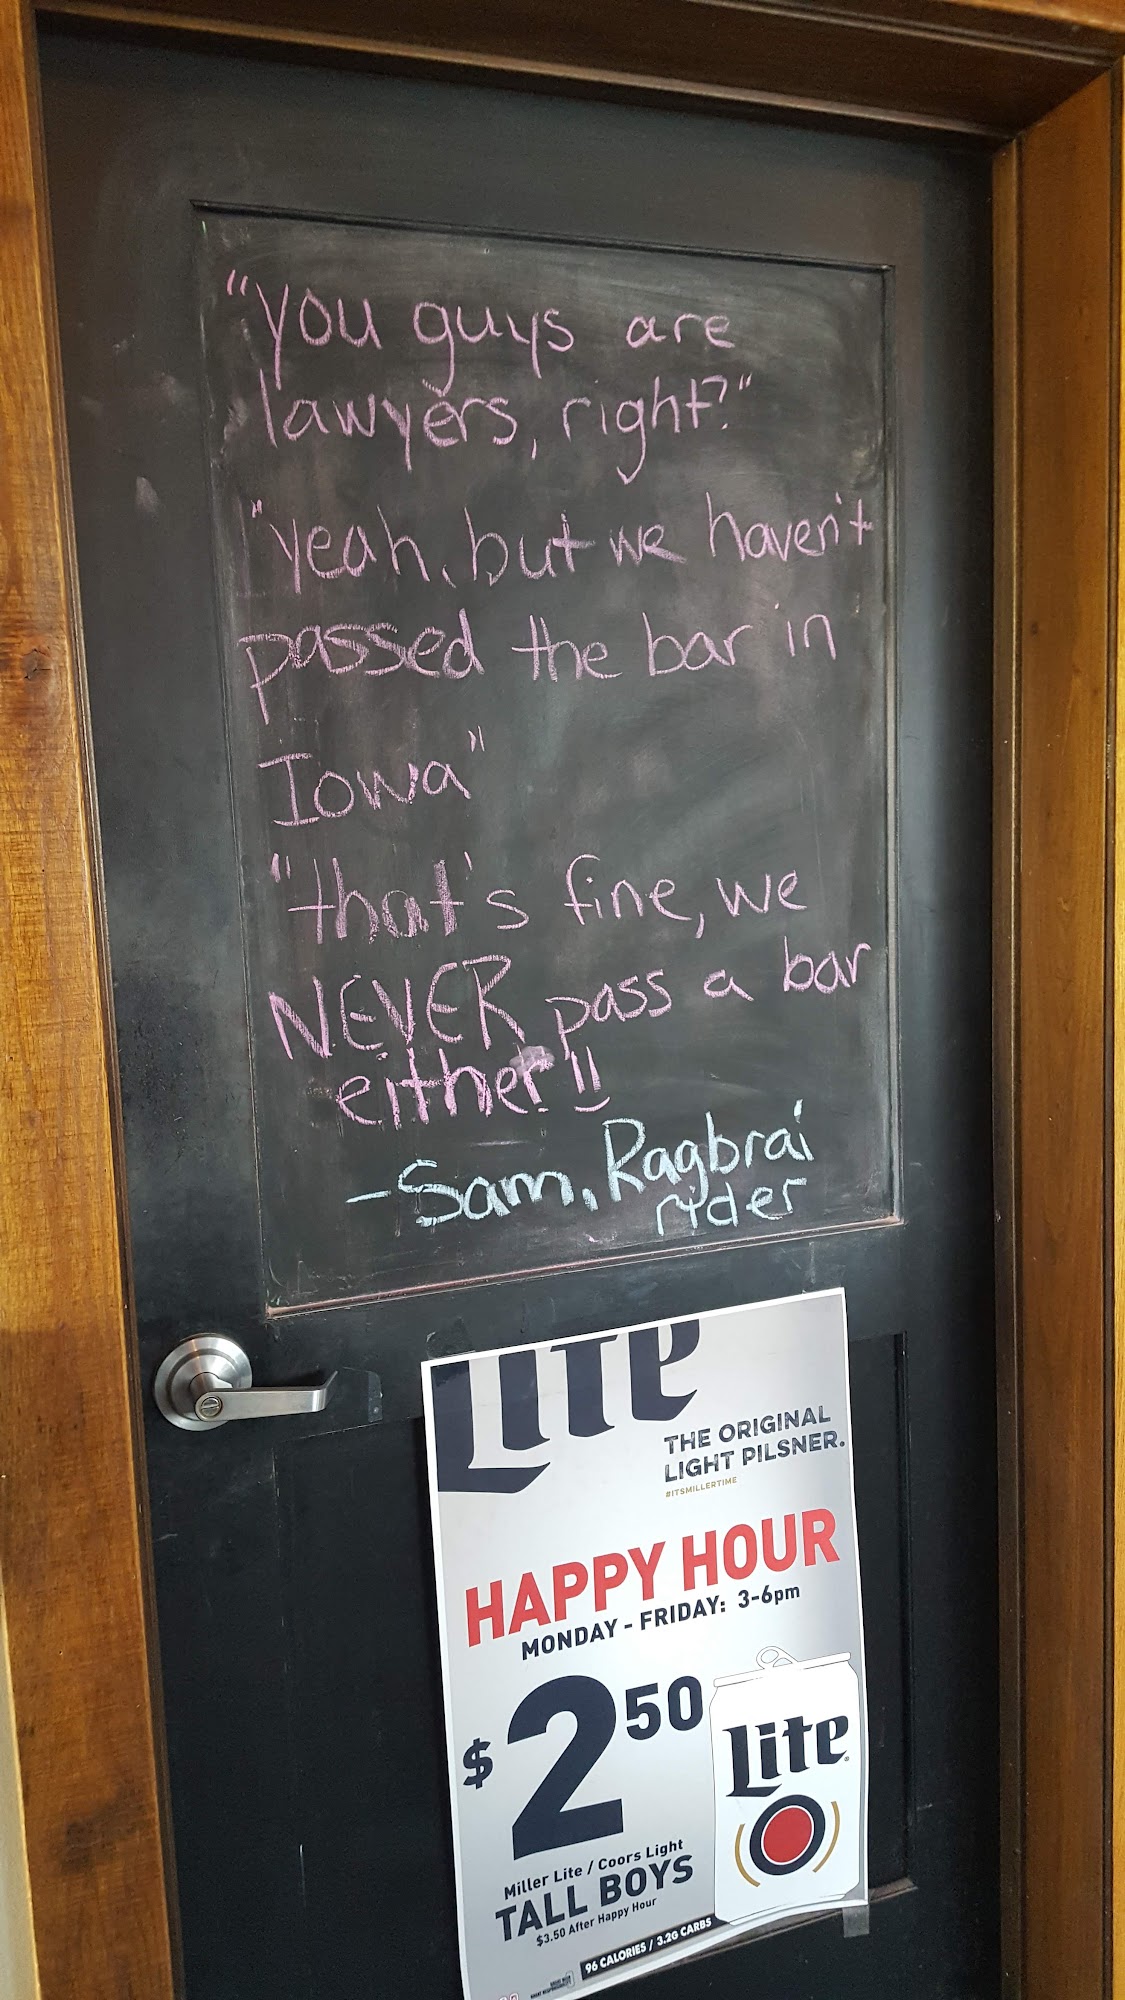 "you guys are
lawyers, right?"
"yeah, but we haven't
passed the bar in
Iowa"
"that's fine, we
NEVER pass a bar
either!!
-Sam, Ragbrai
rider
Lite
THE ORIGINAL
LIGHT PILSNER.
#ITSMILLERTIME
HAPPY HOUR
MONDAY - FRIDAY: 3-6pm
$2.50
Lite
Miller Lite / Coors Light
TALL BOYS
$3.50 After Happy Hour
96 CALORIES / 3.2G CARBS